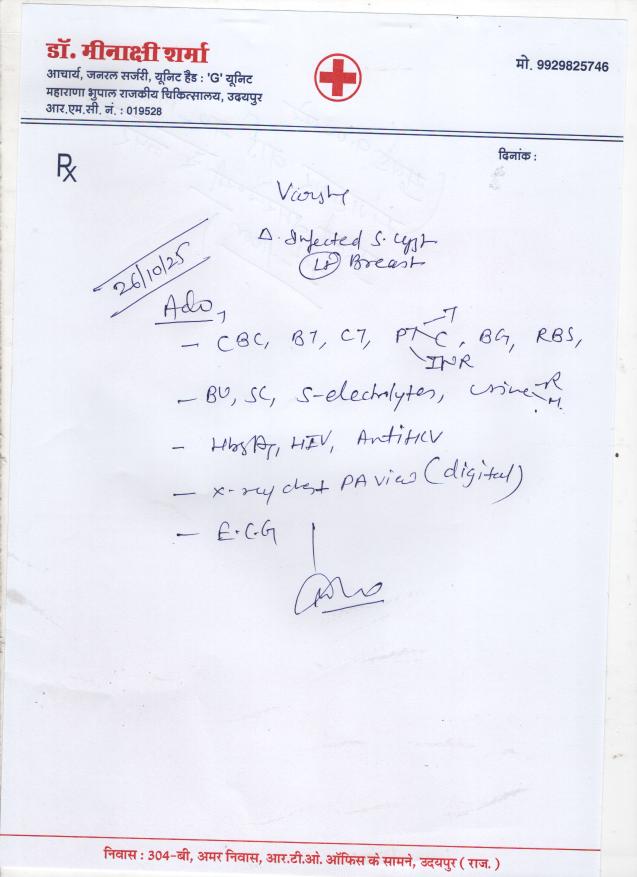 डॉ. मीनाक्षी शर्मा
आचार्य, जनरल सर्जरी, यूनिट हैड : 'G' यूनिट
महाराणा भुपाल राजकीय चिकित्सालय, उदयपुर
आर.एम.सी. नं. : 019528
मो. 9929825746
दिनांक :
Rx
Δ. Infected S. Cyst
Lt Breast
26/10/25
Adv
- CBC, BT, CT, PT C, BG, RBS,
INR
- BU, SC, S-electrolytes, urine R
M.
- HbsAg, HIV, AntiHCV
- X-ray chest PA view (digital)
- E.C.G
निवास : 304-बी, अमर निवास, आर.टी.ओ. ऑफिस के सामने, उदयपुर ( राज. )